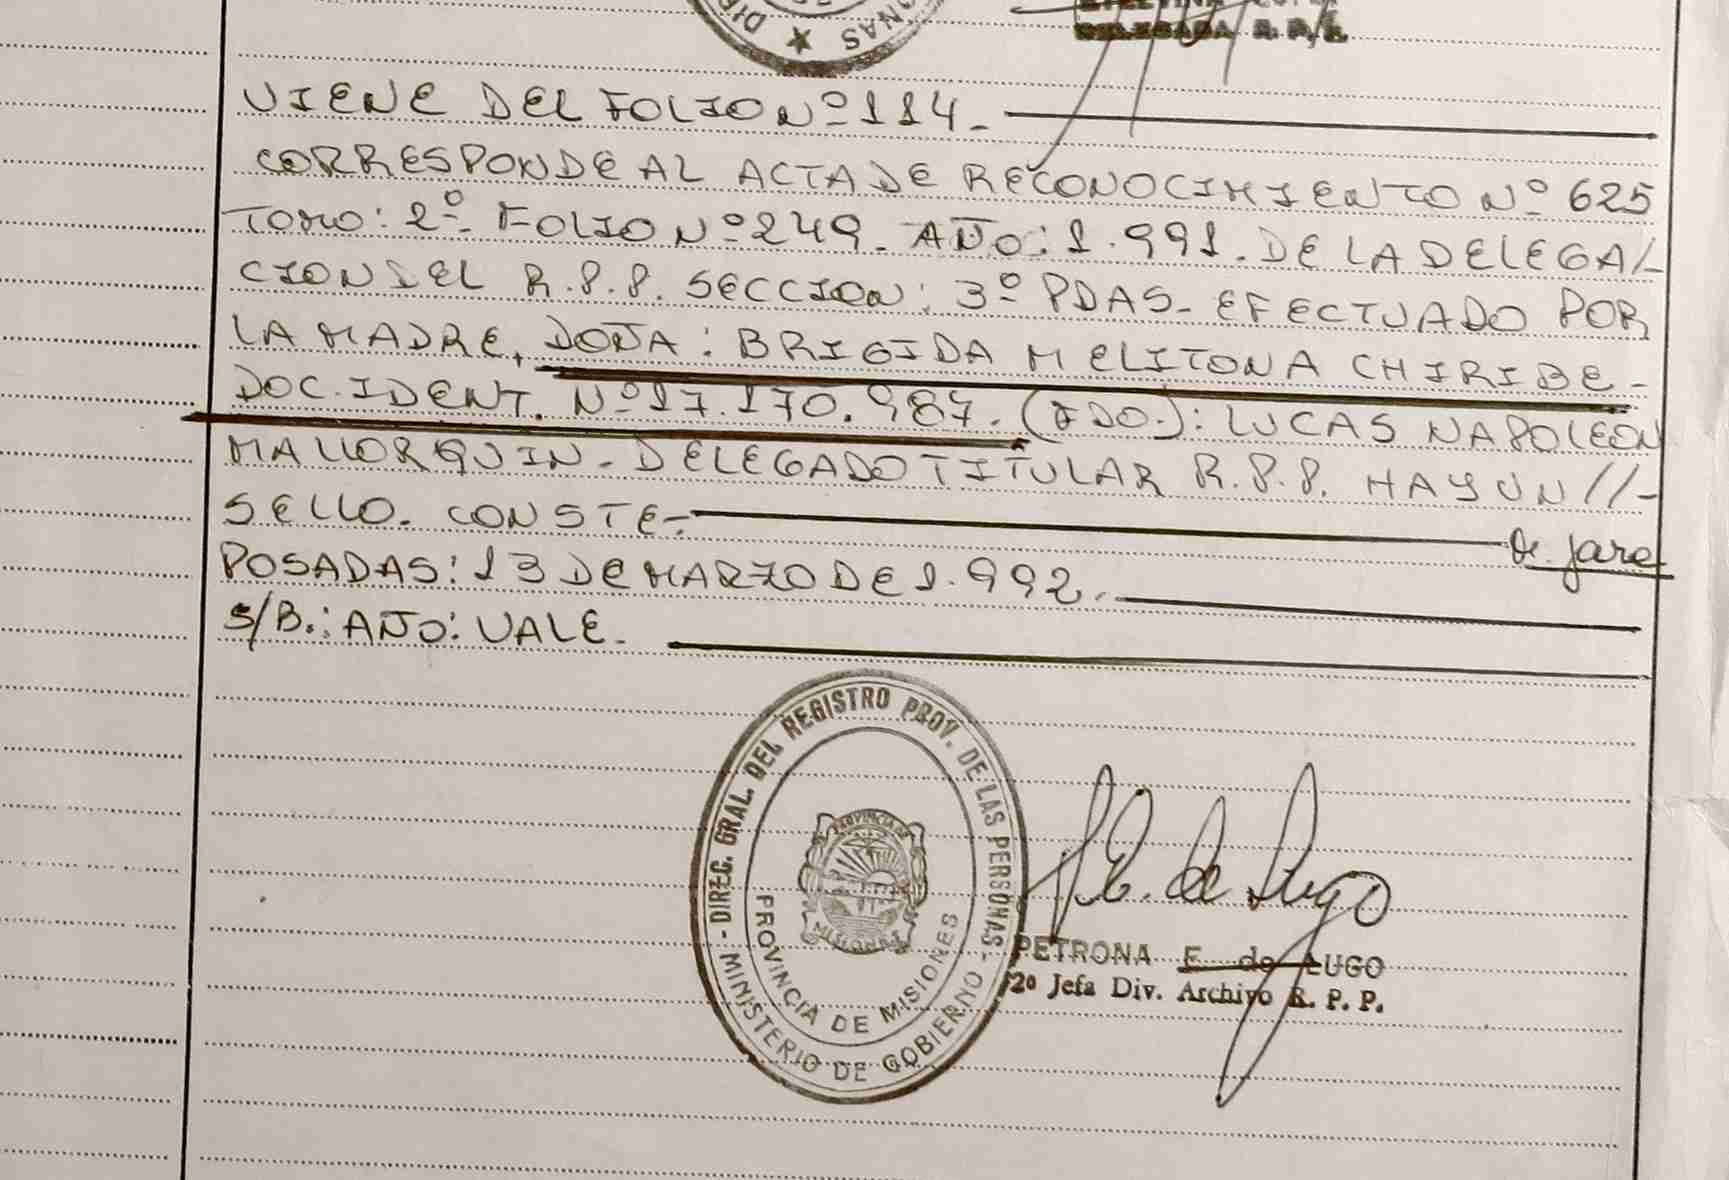 DELEGADA R. P. P.
VIENE DEL FOLIO Nº 114.-
CORRESPONDE AL ACTA DE RECONOCIMIENTO Nº 625
TOMO: 2º- FOLIO Nº 249- AÑO: 1.991. DE LA DELEGA/-
CION DEL R.P.P. SECCION: 3º PDAS- EFECTUADO POR
LA MADRE, DOÑA: BRIGIDA MELITONA CHIRIBE-
DOC. IDENT. Nº 17.170.987. (FDO.): LUCAS NAPOLEON
MALLORQUIN- DELEGADO TITULAR R.P.P. HAY UN //-
SELLO. CONSTE-
POSADAS: 13 DE MARZO DE 1.992.
S/B.: AÑO: VALE.
- DIREC. GRAL. DEL REGISTRO PROV. DE LAS PERSONAS -
MINISTERIO DE GOBIERNO
PROVINCIA DE MISIONES
PROVINCIA DE
MISIONES
P.E. de Lugo
PETRONA E. de LUGO
2º Jefa Div. Archivo R. P. P.